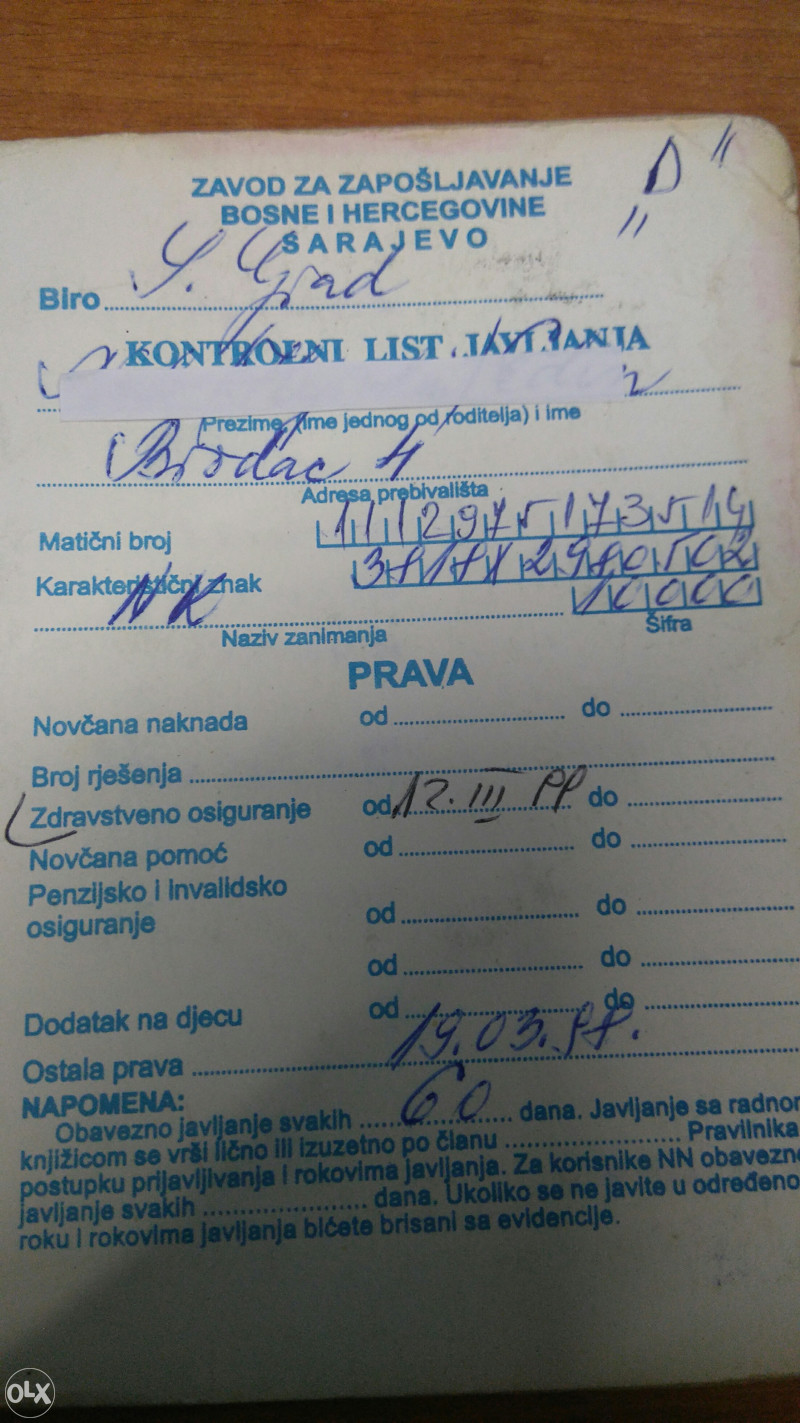 "D"
ZAVOD ZA ZAPOŠLJAVANJE
BOSNE I HERCEGOVINE
SARAJEVO
Biro S. Grad
KONTROLNI LIST JAVLJANJA
Prezime, (ime jednog od roditelja) i ime
4
Adresa prebivališta
Matični broj
Karakteristični znak
NK 10000
Naziv zanimanja Šifra
PRAVA
Novčana naknada od do
Broj rješenja
Zdravstveno osiguranje od 12. III do
Novčana pomoć od do
Penzijsko i invalidsko
osiguranje od do
od do
Dodatak na djecu od do
Ostala prava 19.03.
NAPOMENA:
Obavezno javljanje svakih 60 dana. Javljanje sa radnom
knjižicom se vrši lično ili izuzetno po članu Pravilnika
postupku prijavljivanja i rokovima javljanja. Za korisnike NN obavezno
javljanje svakih dana. Ukoliko se ne javite u određeno
roku i rokovima javljanja bićete brisani sa evidencije.
OLX